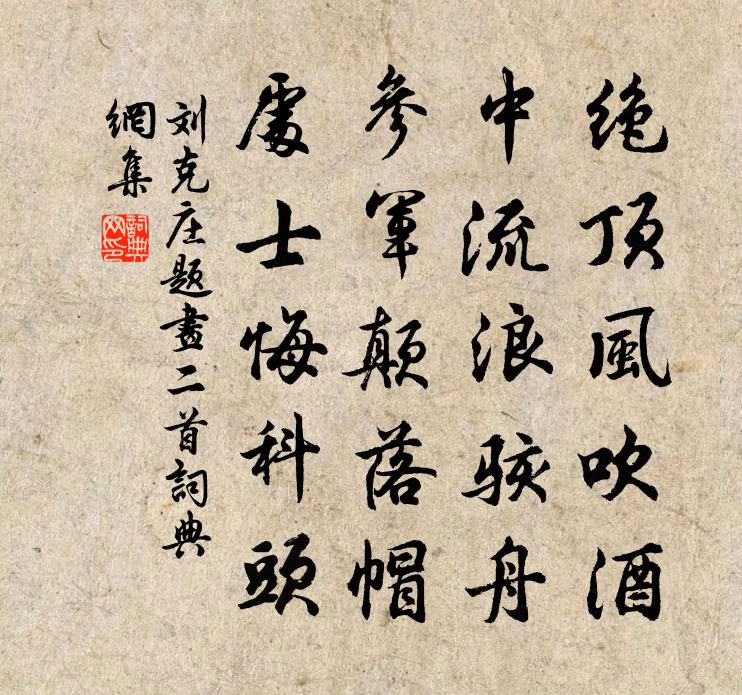 绝顶風吹酒
中流浪骇舟
參軍颠落帽
處士悔科頭
刘克庄题畫二首詞典
網集
詞典网印